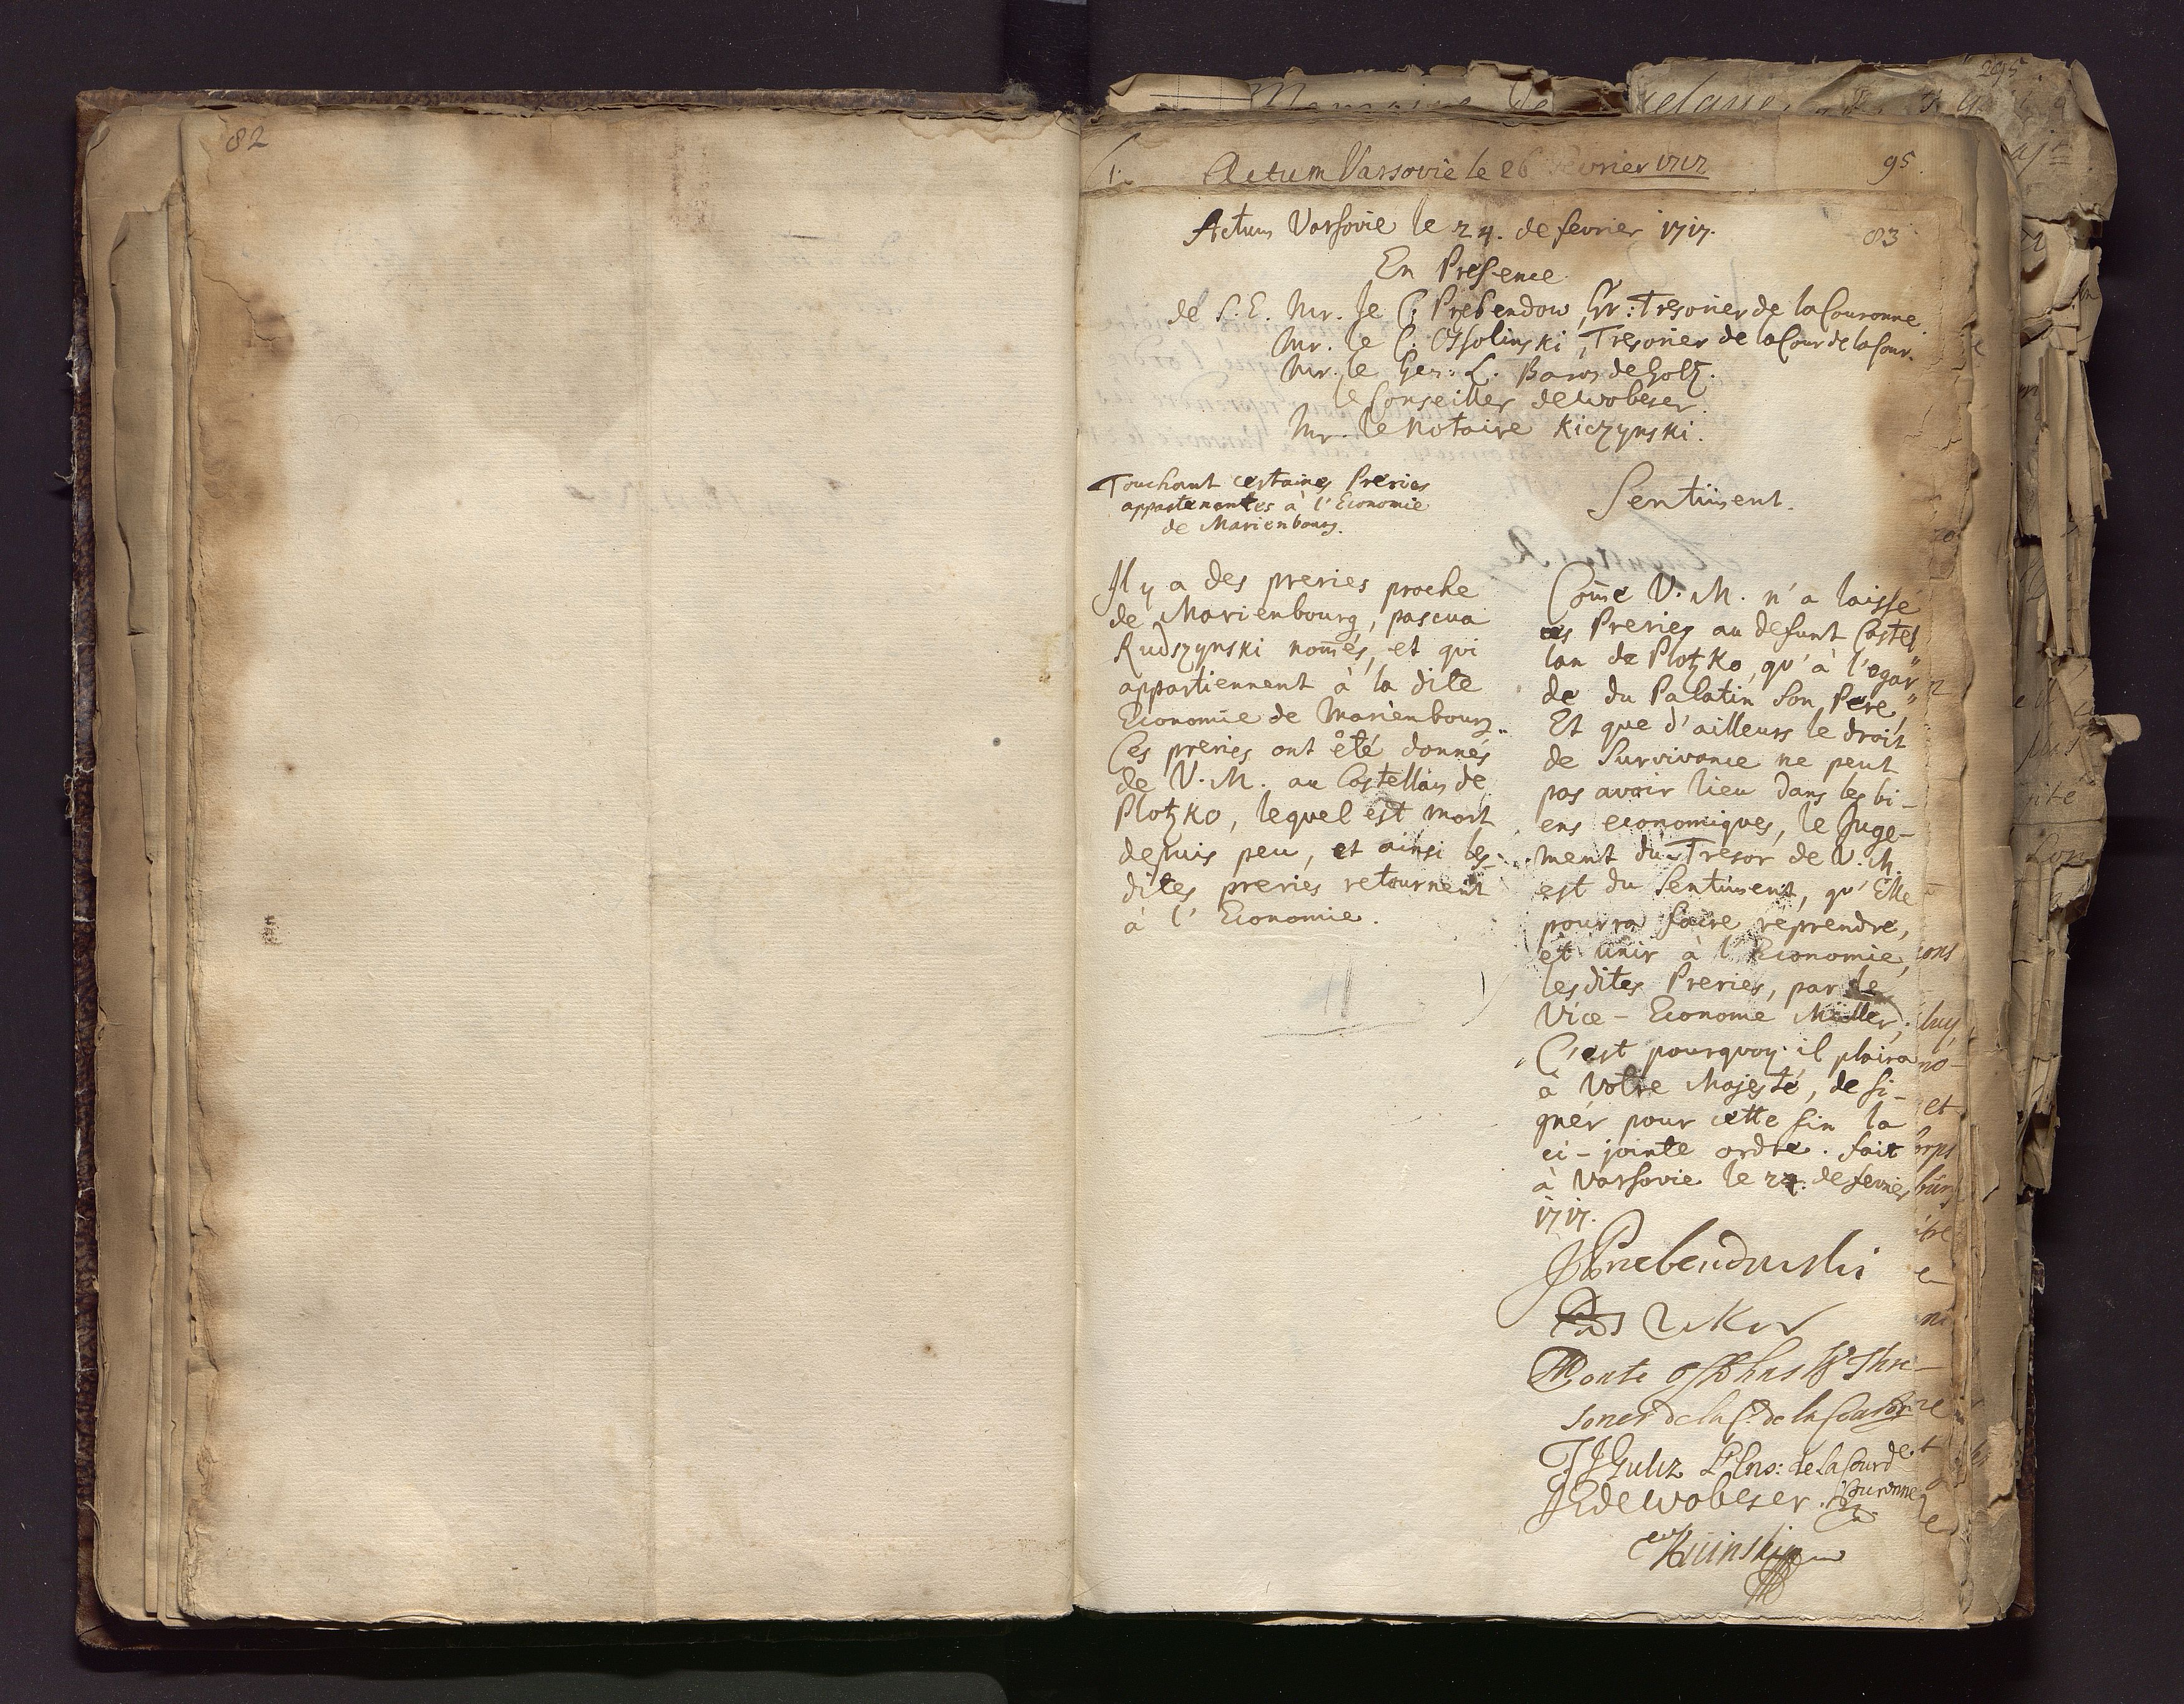 82
1. Actum Varsovie le 26 Fevrier 1717
95
Actum Varsovie le 24. de fevrier 1717.
83
En Presence
de S. E. Mr. le C. Prebendow, Gr: Tresorier de la Couronne.
Mr. le C. Ossolinski, Tresorier de la Cour de la Cour.
Mr. le Gen: L. Baron de Goltz.
le Conseiller de Wobeser.
Mr. le Notaire Kiczynski.
Touchant certaines Preries
appartenantes à l'Economie
de Marienbourg.
Il y a des preries proche
de Marienbourg, pascua
Rudszynski nom̃és, et qui
appartiennent à la dite
Economie de Marienbourg..
Ces preries ont été donnés
de V. M. au Castellan de
Plotzko, lequel est mort
depuis peu, et ainsi les
dites preries retournent
à l'Economie.
Sentiment.
Com̃e V. M. n'a laissé
ces Preries au defunt Castel
lan de Plotzko, qu'à l'egar"
de du Palatin son Pere,"
Et que d'ailleurs le droit
de Survivance ne peut
pas avoir lieu dans les bi-
ens economiques, le Juge-
ment du Tresor de V. M.
est du Sentiment, qu'Elle
pourra faire reprendre,
et unir à l'Economie,
les dites Preries, par le
Vice-Econome Müller,
C'est pourquoy il plaira
à Votre Majesté, de si-
gner pour cette fin la
ci-jointe ordre. fait
à Varsovie le 24. de fevrier
1717.
JPrebendowski
Conte
de la C. de la
de la Cour de
Couronne
JE de Wobeser.